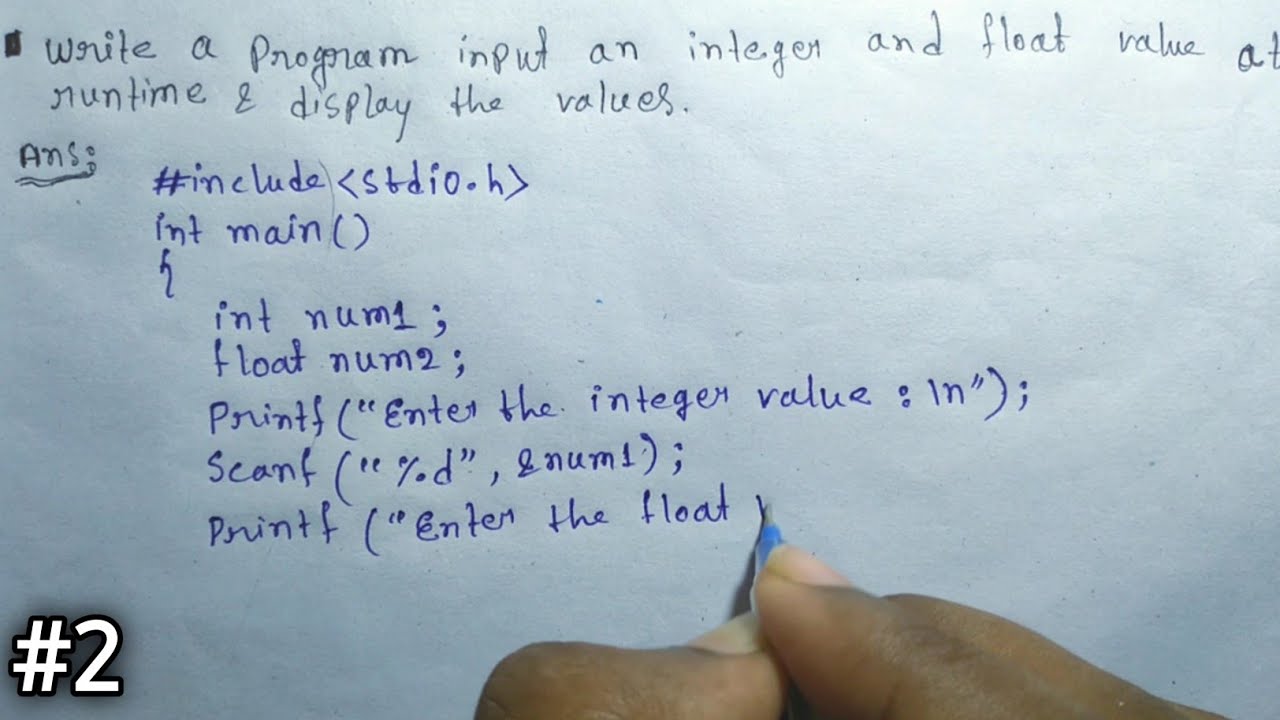 Write a Program input an integer and float value at
runtime & display the values.
Ans:
#include <stdio.h>
int main()
{
int num1;
float num2;
Printf("Enter the integer value : \n");
Scanf ("%d", &num1);
Printf ("Enter the float
#2